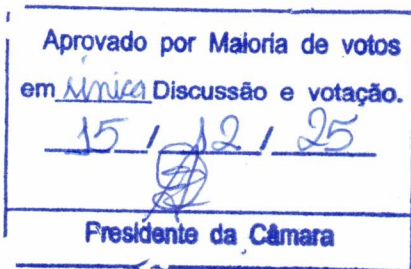 Aprovado por Maioria de votos
em única Discussão e votação.
15 / 12 / 25
Presidente da Câmara